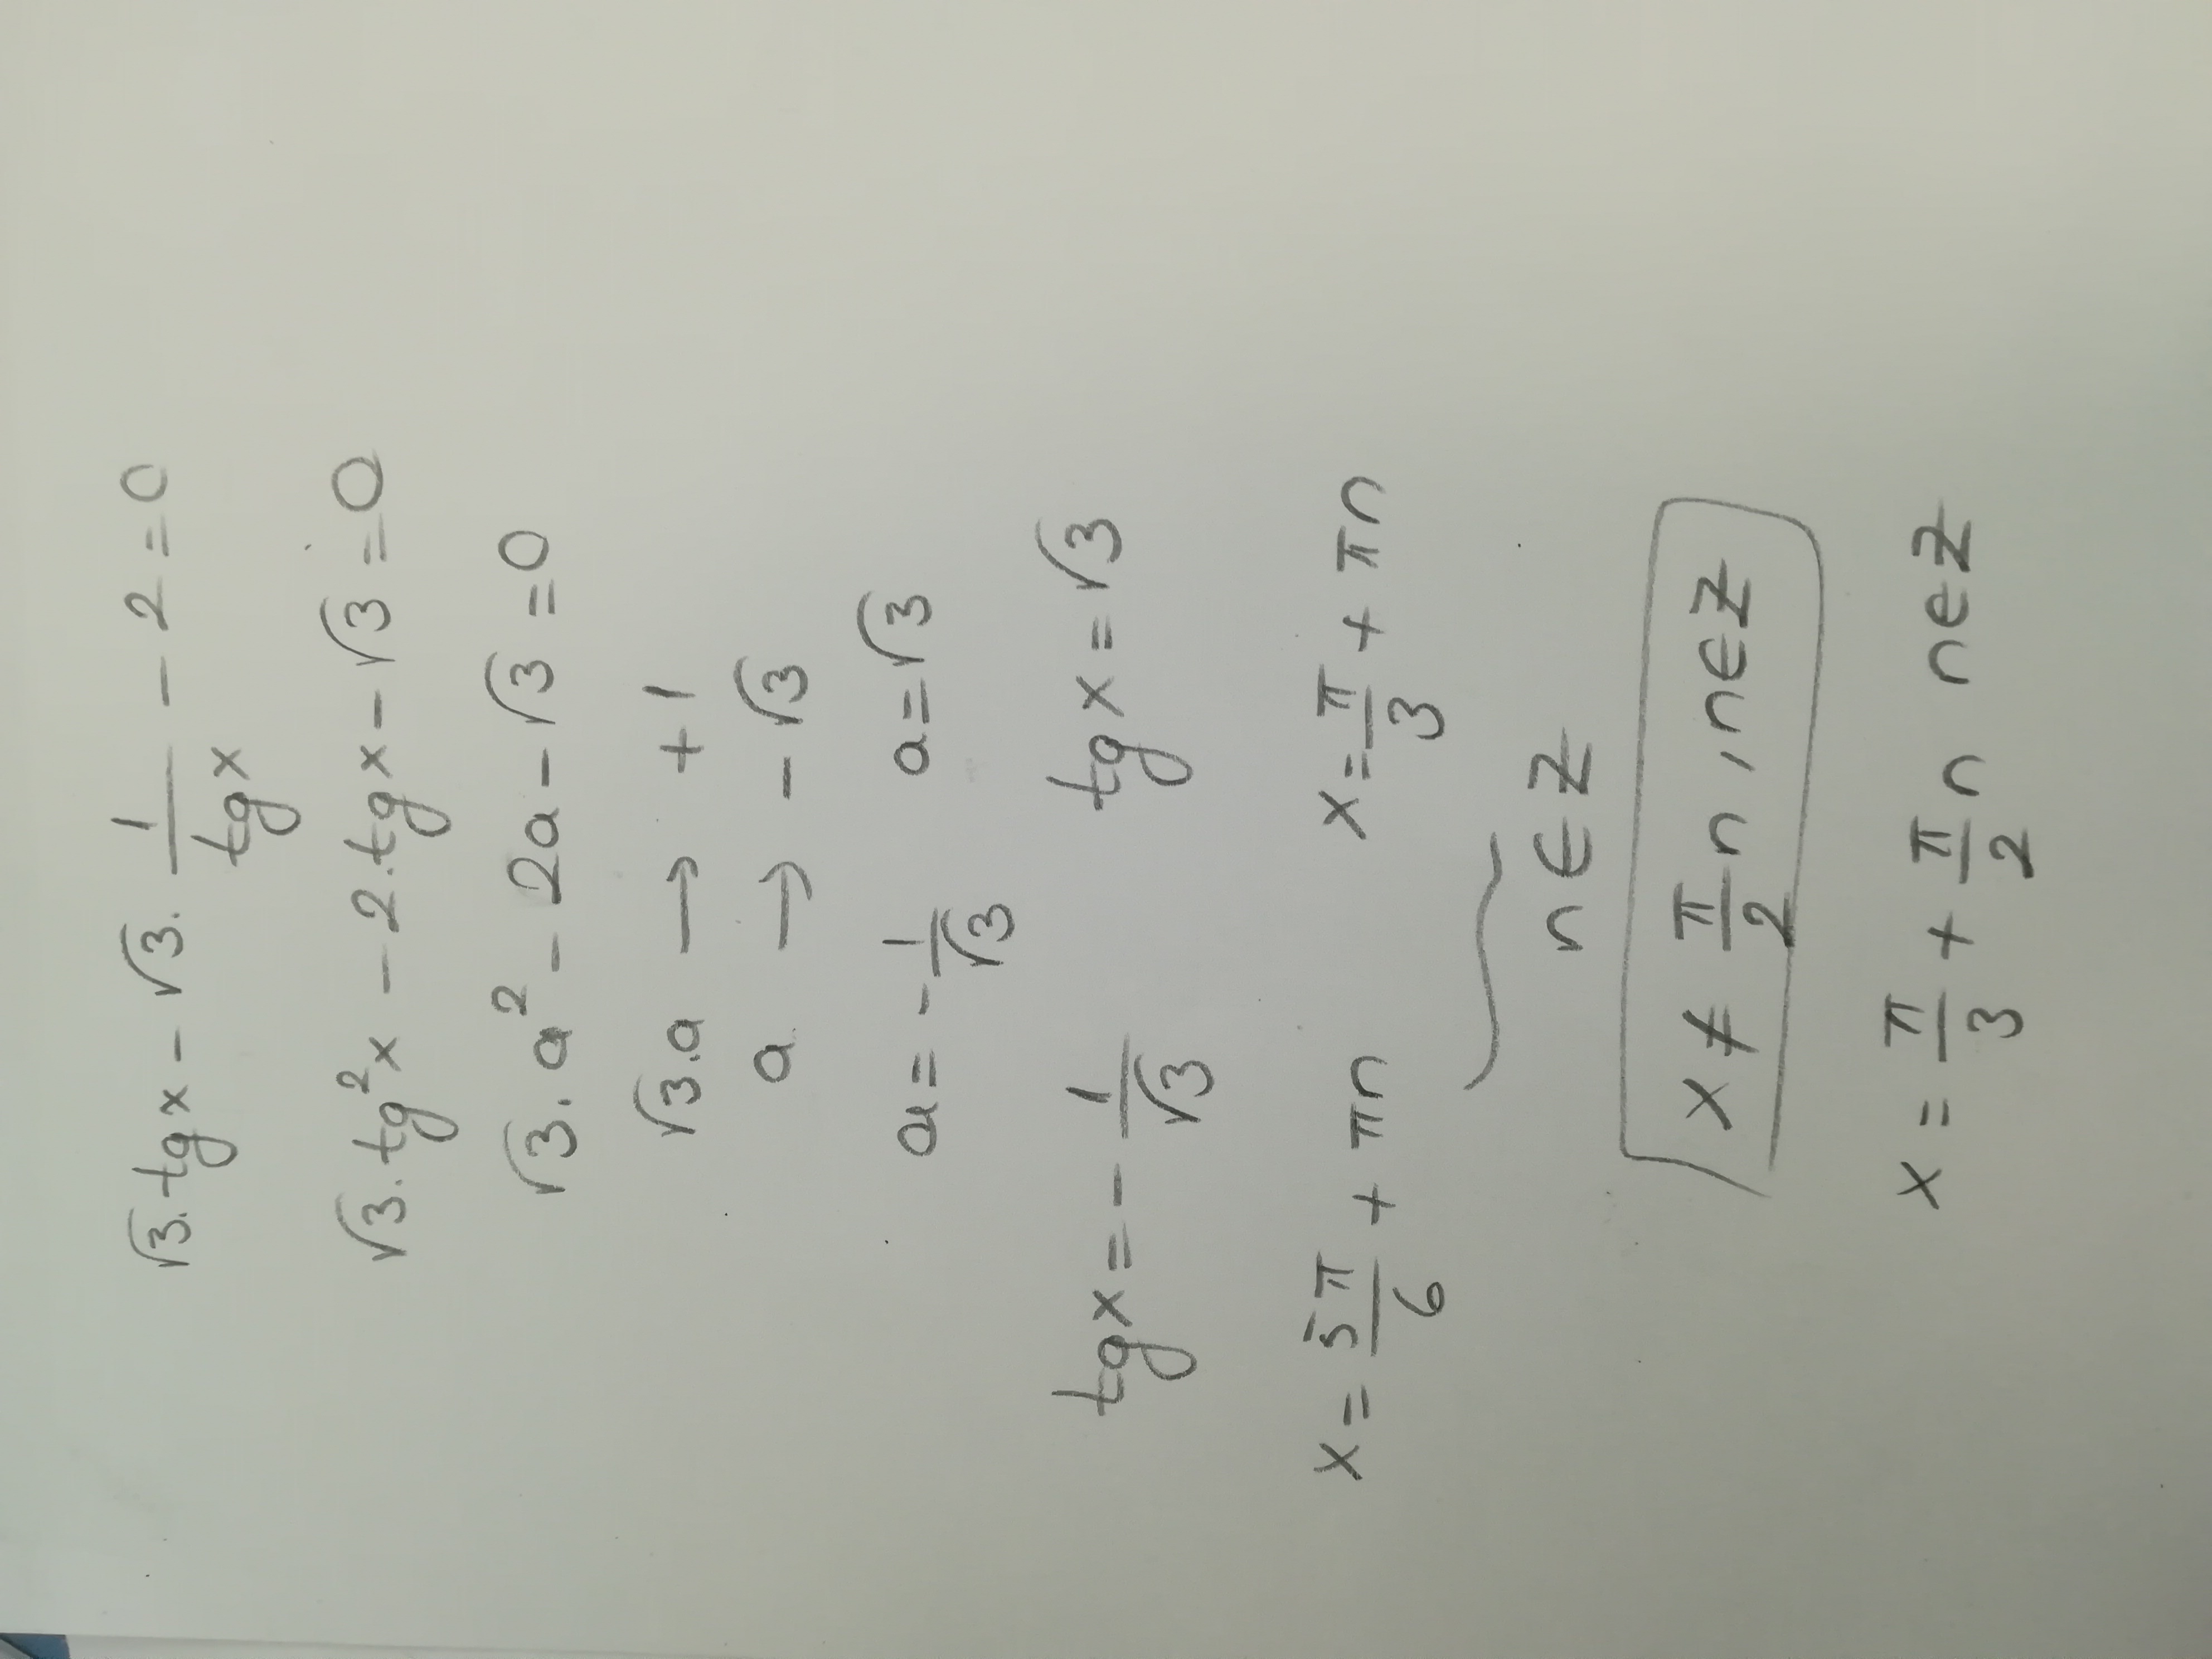 √3·tgx − √3·1/tgx − 2 = 0
√3·tg²x − 2·tgx − √3 = 0
√3·a² − 2a − √3 = 0
√3·a → +1
a → −√3
a = −1/√3 a = √3
tgx = −1/√3 tgx = √3
x = 5π/6 + πn x = π/3 + πn
n ∈ Z
x ≠ π/2 n, n∈Z
x = π/3 + π/2 n n∈Z